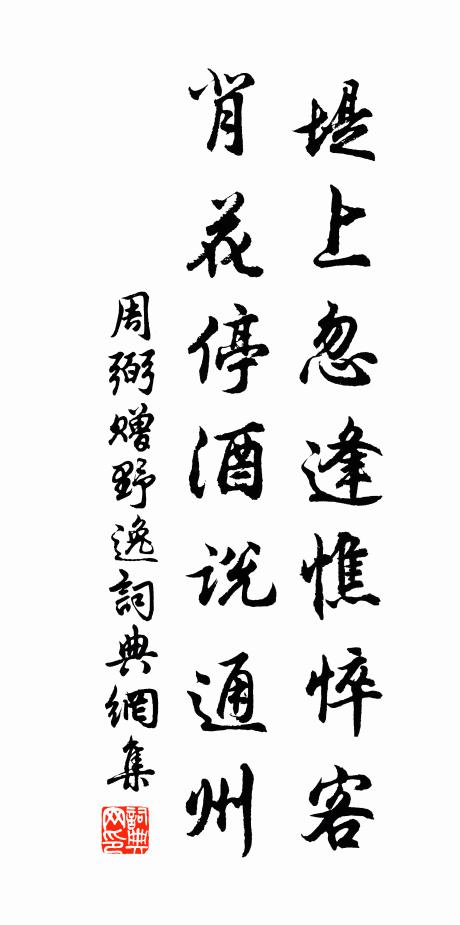 堤上忽逢憔悴客
背花停酒说通州
周弼赠野逸詞典網集
詞典网印